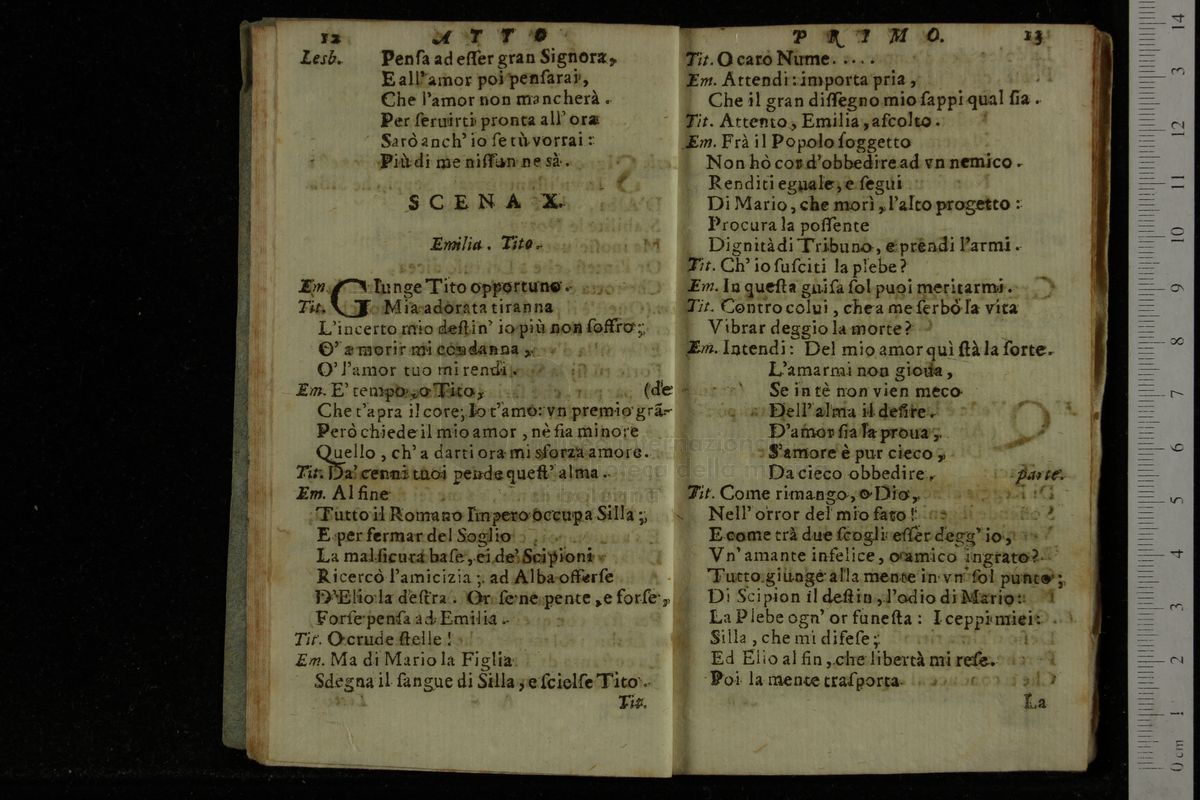 12 ATTO
Lesb. Penſa ad eſſer gran Signora,
E all'amor poi penſarai,
Che l'amor non mancherà.
Per ſeruirti pronta all' ora
Sarò anch' io ſe tù vorrai:
Più di me niſſun ne sà.
SCENA X.
Emilia. Tito.
Em. GIunge Tito opportuno.
Tit. Mia adorata tiranna
L'incerto mio deſtin' io più non ſoffro;
O' a morir mi condanna,
O' l'amor tuo mi rendi.
Em. E' tempo, o Tito, (de
Che t'apra il core; Io t'amo: vn premio grã-
Però chiede il mio amor, nè ſia minore
Quello, ch' a darti ora mi sforza amore.
Tit. Da' cenni tuoi pende queſt' alma.
Em. Al fine
Tutto il Romano Impero occupa Silla;
E per fermar del Soglio
La mal ſicura baſe, ei de' Scipioni
Ricercò l'amicizia; ad Alba offerſe
D'Elio la deſtra. Or ſe ne pente, e forſe,
Forſe penſa ad Emilia.
Tit. O crude ſtelle!
Em. Ma di Mario la Figlia
Sdegna il ſangue di Silla, e ſcielſe Tito.
Tit.
PRIMO. 13
Tit. O caro Nume.....
Em. Attendi: importa pria,
Che il gran diſſegno mio ſappi qual ſia.
Tit. Attento, Emilia, aſcolto.
Em. Frà il Popolo ſoggetto
Non hò cor d'obbedire ad vn nemico.
Renditi eguale, e ſegui
Di Mario, che morì, l'alto progetto:
Procura la poſſente
Dignità di Tribuno, e prendi l'armi.
Tit. Ch' io ſuſciti la plebe?
Em. In queſta guiſa ſol puoi meritarmi.
Tit. Contro colui, che a me ſerbò la vita
Vibrar deggio la morte?
Em. Intendi: Del mio amor quì ſtà la ſorte.
L'amarmi non gioua,
Se in tè non vien meco
Dell' alma il deſire.
D'amor ſia la proua,
S'amore è pur cieco,
Da cieco obbedire. parte.
Tit. Come rimango, o Dio,
Nell' orror del mio fato!
E come trà due ſcogli eſſer degg' io,
Vn' amante infelice, o amico ingrato?
Tutto giunge alla mente in vn' ſol punto;
Di Scipion il deſtin, l'odio di Mario:
La Plebe ogn' or funeſta: I ceppi miei:
Silla, che mi difeſe;
Ed Elio al fin, che libertà mi reſe.
Poi la mente traſporta
La